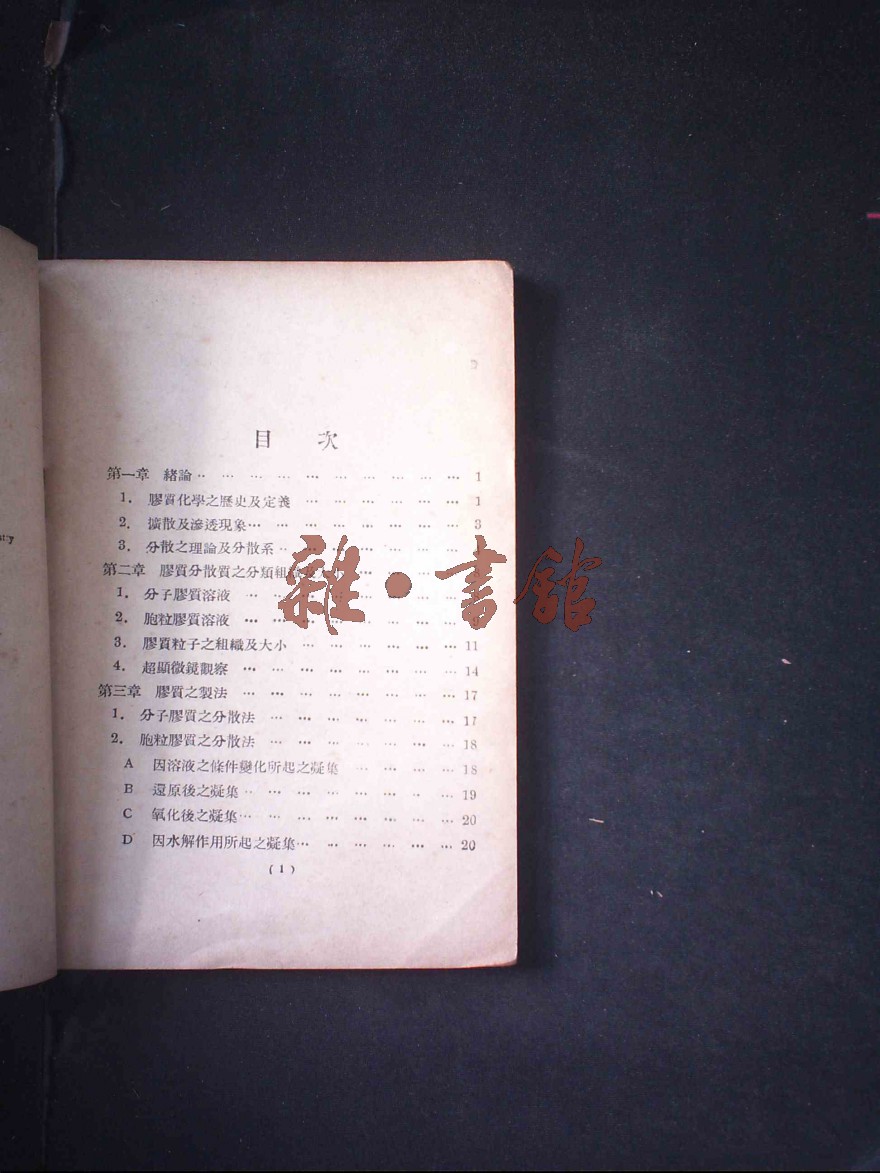 目 次
第一章 緒論 … … … … … … … … … … 1
1. 膠質化學之歷史及定義 … … … … … … 1
2. 擴散及滲透現象 … … … … … … … … 3
3. 分散之理論及分散系 … … … … …
第二章 膠質分散質之分類組織及大小 … … …
1. 分子膠質溶液 … … … … … …
2. 胞粒膠質溶液 … … … … … …
3. 膠質粒子之組織及大小 … … … … … … 11
4. 超顯微鏡觀察 … … … … … … … … 14
第三章 膠質之製法 … … … … … … … … 17
1. 分子膠質之分散法 … … … … … … … 17
2. 胞粒膠質之分散法 … … … … … … … 18
A 因溶液之條件變化所起之凝集 … … … … 18
B 還原後之凝集 … … … … … … … … 19
C 氧化後之凝集 … … … … … … … … 20
D 因水解作用所起之凝集 … … … … … … 20
(1)
雜·書館